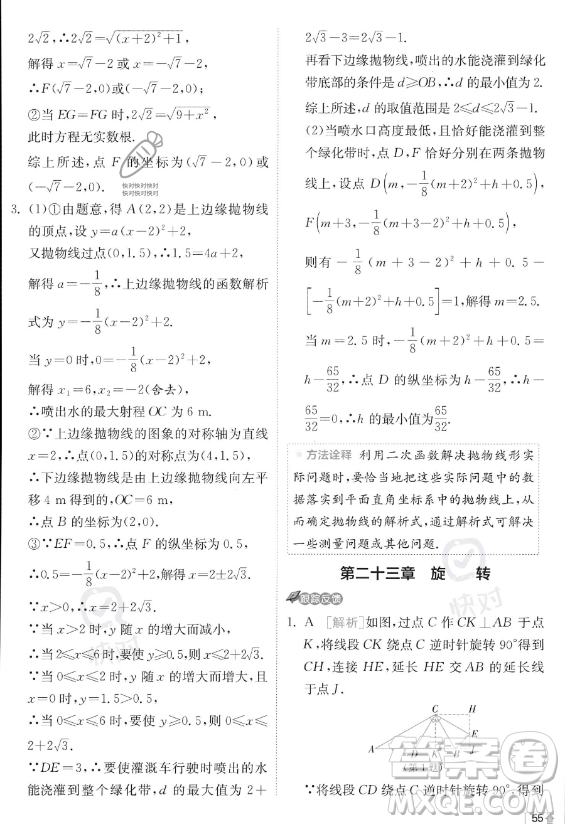 2√2,∴2√2=√((x+2)²+1),
解得 x=√7-2或x=-√7-2.
∴F(√7-2,0)或(-√7-2,0).
②当 EG=FG 时,2√2=√(9+x²),
此时方程无实数根.
综上所述,点 F 的坐标为(√7-2,0)或
(-√7-2,0).
快对快对快对
快对快对快对
3. (1)①由题意,得 A(2,2)是上边缘抛物线
的顶点,设 y=a(x-2)²+2,
又抛物线过点(0,1.5),∴1.5=4a+2,
解得 a=-1/8,∴上边缘抛物线的函数解析
式为 y=-1/8(x-2)²+2.
当 y=0时,0=-1/8(x-2)²+2,
解得 x₁=6,x₂=-2(舍去),
∴喷出水的最大射程 OC 为 6 m.
②∵上边缘抛物线的图象的对称轴为直线
x=2,∴点(0,1.5)的对称点为(4,1.5),
∴下边缘抛物线是由上边缘抛物线向左平
移 4 m得到的,OC=6 m,
∴点 B 的坐标为(2,0).
③∵EF=0.5,∴点 F 的纵坐标为0.5,
∴0.5=-1/8(x-2)²+2,
解得 x=2±2√3.
∵x>0,∴x=2+2√3.
当 x>2 时,y 随 x 的增大而减小,
∴当 2≤x≤6时,要使 y≥0.5,则 x≤
2+2√3.
∵当 0≤x≤2时,y 随 x 的增大而增大,
且 x=0 时,y=1.5>0.5,
∴当 0≤x≤6时,要使 y≥0.5,则 0≤x≤
2+2√3.
∵DE=3,∴要使灌溉车行驶时喷出的水
能浇灌到整个绿化带,d的最大值为 2+
2√3-3=2√3-1.
再看下边缘抛物线,喷出的水能浇灌到绿化
带底部的条件是 d≥OB,∴d 的最小值为 2.
综上所述,d 的取值范围是 2≤d≤2√3-1.
(2)当喷水口高度最低,且恰好能浇灌到整
个绿化带时,点 D,F 恰好分别在两条抛物
线上,设点 D(m,-1/8(m+2)²+h+0.5),
F(m+3,-1/8(m+3-2)²+h+0.5),
则有-1/8(m+3-2)²+h+0.5-
[-1/8(m+2)²+h+0.5]=1,解得 m=2.5.
当 m=2.5 时,-1/8(m+2)²+h+0.5=
h-65/32,∴点 D 的纵坐标为 h-65/32,∴h-
65/32=0,∴h的最小值为65/32.
方法诠释 利用二次函数解决抛物线形实
际问题时,要恰当地把这些实际问题中的数
据落实到平面直角坐标系中的抛物线上,从
而确定抛物线的解析式,通过解析式可解决
一些测量问题或其他问题.
第二十三章 旋 转
跟踪反馈
1. A [解析]如图,过点 C 作 CK⊥AB 于点
K,将线段 CK 绕点 C 逆时针旋转 90°得到
CH,连接 HE,延长 HE 交 AB 的延长线
于点 J.
C H
A D K B J
(第1题)
∵将线段 CD 绕点 C 逆时针旋转 90°得到
快对
答案圈
55